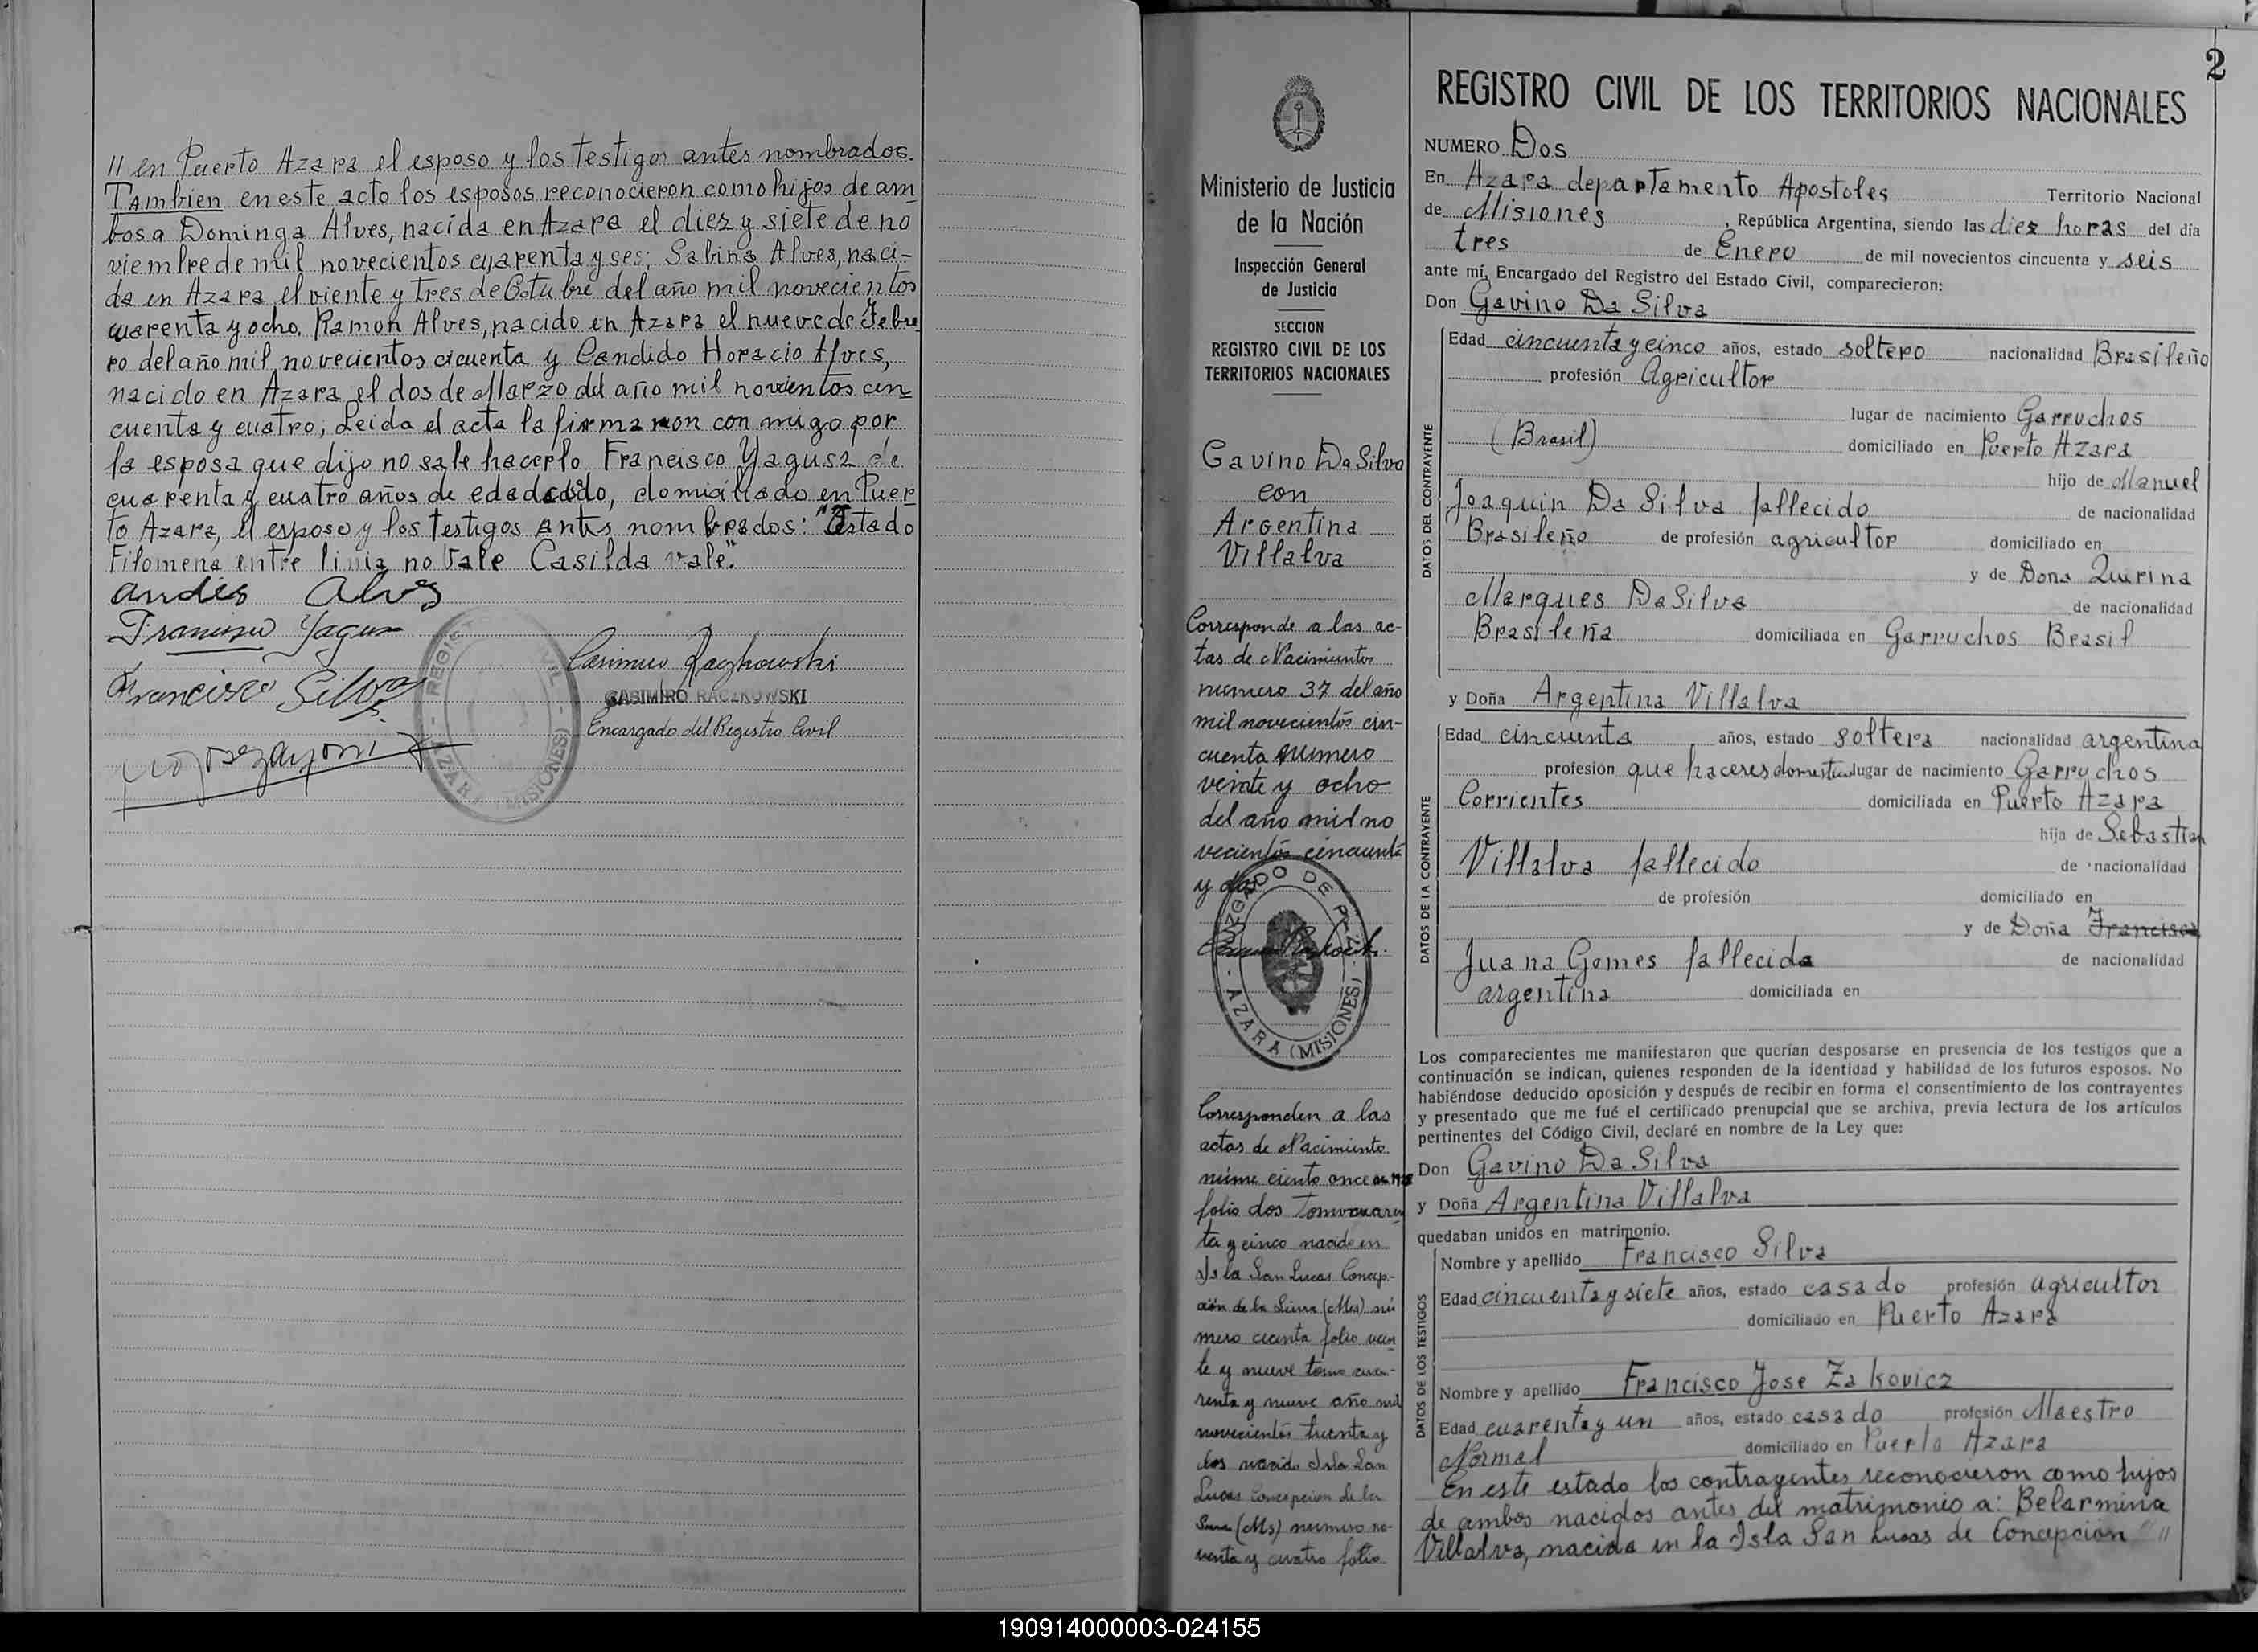 II en Puerto Azara el esposo y los testigos antes nombrados.
Tambien en este acto los esposos reconocieron como hijos de am
bos a Dominga Alves, nacida en Azara el diez y siete de no
viembre de mil novecientos cuarenta y seis; Sabina Alves, naci-
da en Azara el viente y tres de Octubre del año mil novecientos
cuarenta y ocho. Ramon Alves, nacido en Azara el nueve de Febre
ro del año mil novecientos cicuenta y Candido Horacio Alves,
nacido en Azara el dos de Marzo del año mil novecientos cin
cuenta y cuatro; Leida el acta la firmaron con migo por
la esposa que dijo no sabe hacerlo Francisco Yagusz de
cuarenta y cuatro años de edad, domiciliado en Puer
to Azara, el esposo y los testigos antes nombrados: "Estado
Filomena entre linia no Vale Casilda vale".
andés Alves
Francisco Yagusz
Francisco Silva
Casimiro Raczkowski
CASIMIRO RACZKOWSKI
Encargado del Registro Civil
REGISTRO CIVIL - AZARA (MISIONES)
2
Ministerio de Justicia
de la Nación
Inspección General
de Justicia
SECCION
REGISTRO CIVIL DE LOS
TERRITORIOS NACIONALES
Gavino Da Silva
con
Argentina
Villalva
Corresponde a las ac-
tas de Nacimientos
numero 37 del año
mil novecientos cin-
cuenta numero
veinte y ocho
del año mil no
vecientos cincuenta
y dos
JUZGADO DE PAZ - AZARA (MISIONES)
Corresponden a las
actas de Nacimiento
núme ciento once
folio dos Tomo cuaren
ta y cinco nacido en
Isla San Lucas Concep-
ción de la Sierra (Mis) nú
mero folio vein
te y nueve tomo cua-
renta y nueve año mil
novecientos treinta y
dos nacido Isla San
Lucas Concepcion de la
Sierra (Ms) numero no-
venta y cuatro folio
REGISTRO CIVIL DE LOS TERRITORIOS NACIONALES
NUMERO Dos
En Azara departamento Apostoles Territorio Nacional
de Misiones, República Argentina, siendo las diez horas del día
tres de Enero de mil novecientos cincuenta y seis
ante mí, Encargado del Registro del Estado Civil, comparecieron:
Don Gavino Da Silva
DATOS DEL CONTRAYENTE
Edad cincuenta y cinco años, estado soltero nacionalidad Brasileño
profesión Agricultor
lugar de nacimiento Garruchos
(Brasil) domiciliado en Puerto Azara
hijo de Manuel
Joaquin Da Silva fallecido de nacionalidad
Brasileño de profesión agricultor domiciliado en
y de Dona Quirina
Marques Da Silva de nacionalidad
Brasileña domiciliada en Garruchos Brasil
y Doña Argentina Villalva
DATOS DE LA CONTRAYENTE
Edad cincuenta años, estado soltera nacionalidad argentina
profesión que haceres domesticos lugar de nacimiento Garruchos
Corrientes domiciliada en Puerto Azara
hija de Sebastian
Villalva fallecido de nacionalidad
de profesión domiciliado en
y de Doña Francisca
Juana Gomes fallecida de nacionalidad
argentina domiciliada en
Los comparecientes me manifestaron que querían desposarse en presencia de los testigos que a
continuación se indican, quienes responden de la identidad y habilidad de los futuros esposos. No
habiéndose deducido oposición y después de recibir en forma el consentimiento de los contrayentes
y presentado que me fué el certificado prenupcial que se archiva, previa lectura de los artículos
pertinentes del Código Civil, declaré en nombre de la Ley que:
Don Gavino Da Silva
y Doña Argentina Villalva
quedaban unidos en matrimonio.
DATOS DE LOS TESTIGOS
Nombre y apellido Francisco Silva
Edad cincuenta y siete años, estado casado profesión agricultor
domiciliado en Puerto Azara
Nombre y apellido Francisco Jose Zakovicz
Edad cuarenta y un años, estado casado profesión Maestro
Normal domiciliado en Puerto Azara
En este estado los contrayentes reconocieron como hijos
de ambos nacidos antes del matrimonio a: Belarmina
Villalva, nacida en la Isla San Lucas de Concepción "II
190914000003-024155